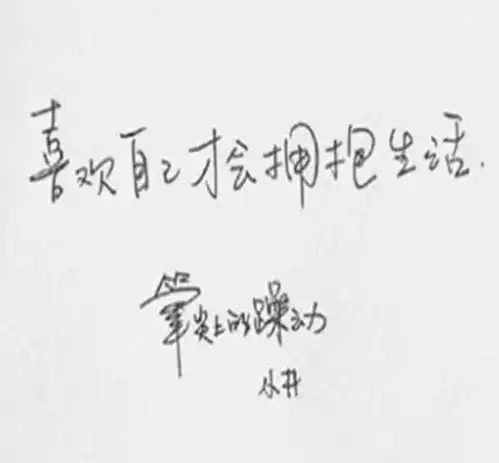 喜欢自己才会拥抱生活.
笔尖上的躁动
小井